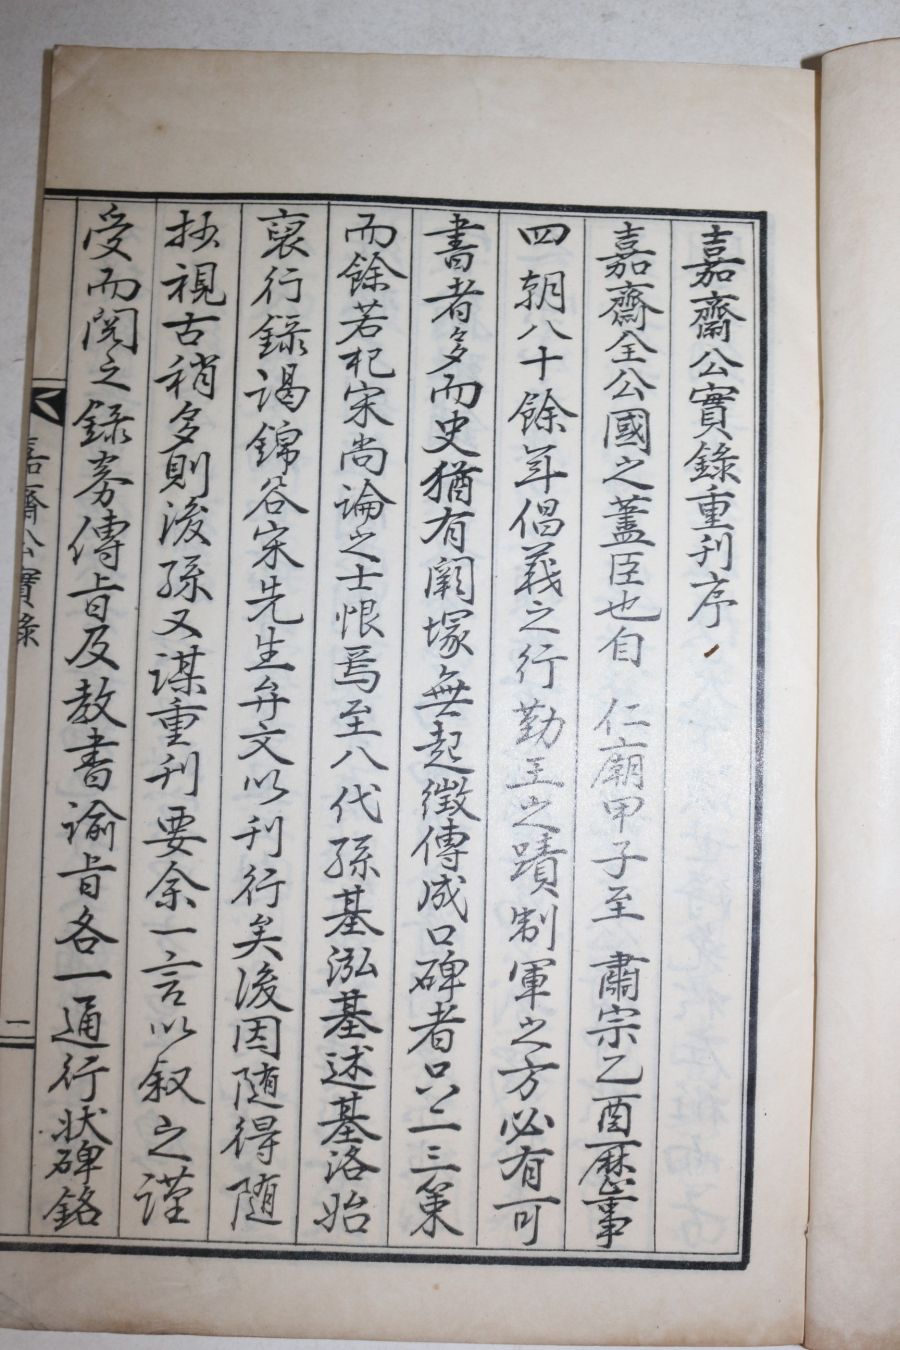 嘉齋公實錄重刊序
嘉齋全公國之藎臣也自 仁廟甲子至 肅宗乙酉歷事
四朝八十餘年倡義之行勤王之蹟制軍之方必有可
書者多而史猶有闕塚無起徵傳成口碑者只二三策
而餘若杞宋尚論之士恨焉至八代孫基泓基述基洛始
裒行錄謁錦谷宋先生弁文以刊行矣後因隨得隨
抄視古稍多則後孫又謀重刊要余一言以叙之謹
受而閱之錄券傳旨及教書諭旨各一通行狀碑銘
嘉齋公實錄
二